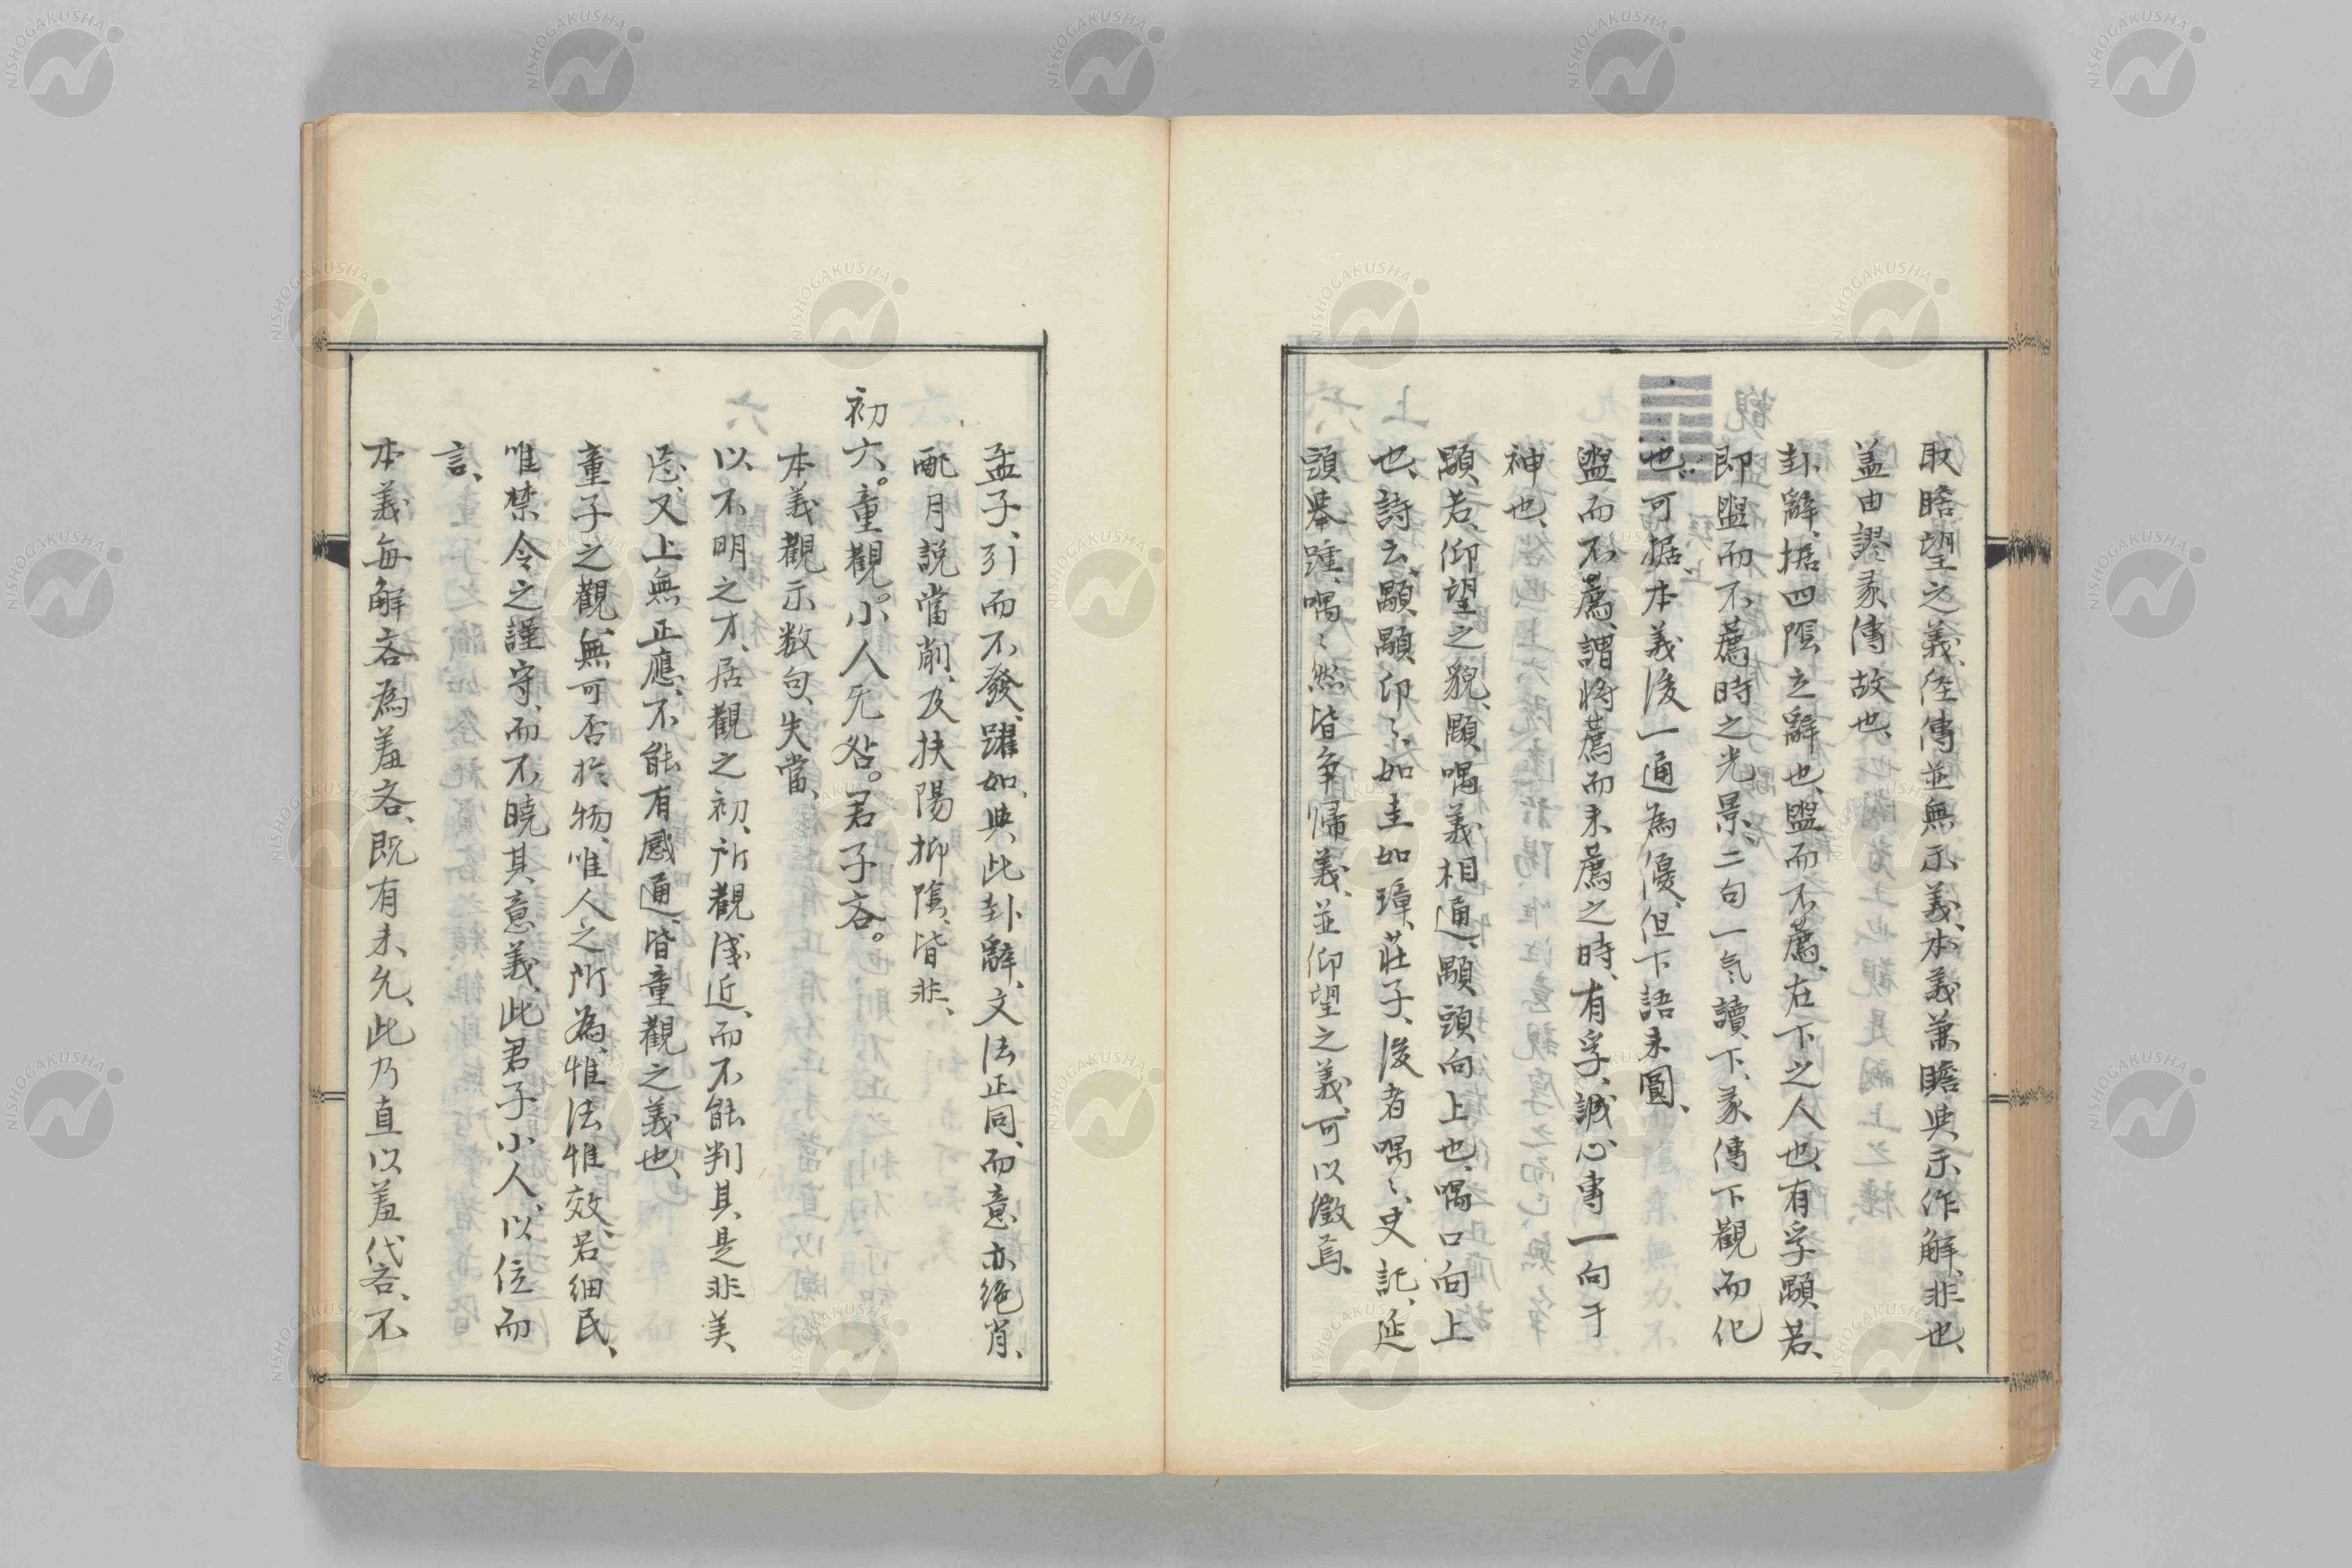 取瞻望之義、侄傳並無示義、本義兼瞻與示作解、非也、
蓋由謬彖傳故也、
卦辭、据四陰之辭也、盥而不薦、在下之人也、有孚顒若、
即盥而不薦時之光景、二句一气讀、下彖傳下觀而化
也、可据、本義後一通為優、但下語未圓、
盥而不薦、謂將薦而未薦之時、有孚、誠心專一向于
神也、
顒若、仰望之貌、顒喁義相通、顒頭向上也、喁口向上
也、詩云、顒顒卬〻、如圭如璋、莊子、後者喁〻、史記、延
頸舉踵、喁〻然皆爭歸義、並仰望之義、可以徵焉、
孟子、引而不發、躍如、與此卦辭、文法正同、而意亦絶肖、
配月説當削、及扶陽抑陰、皆非、
初六。童觀。小人无咎。君子吝。
本義觀示数句、失當、
以不明之才、居觀之初、所觀淺近、而不能判其是非美
惡、又上無正應、不能有感通、皆童觀之義也、
童子之觀、無可否於物、唯人之所為、惟法惟效、若細民、
唯禁令之謹守、而不曉其意義、此君子小人、以位而
言、
本義每解吝為羞吝、既有未允、此乃直以羞代吝、不